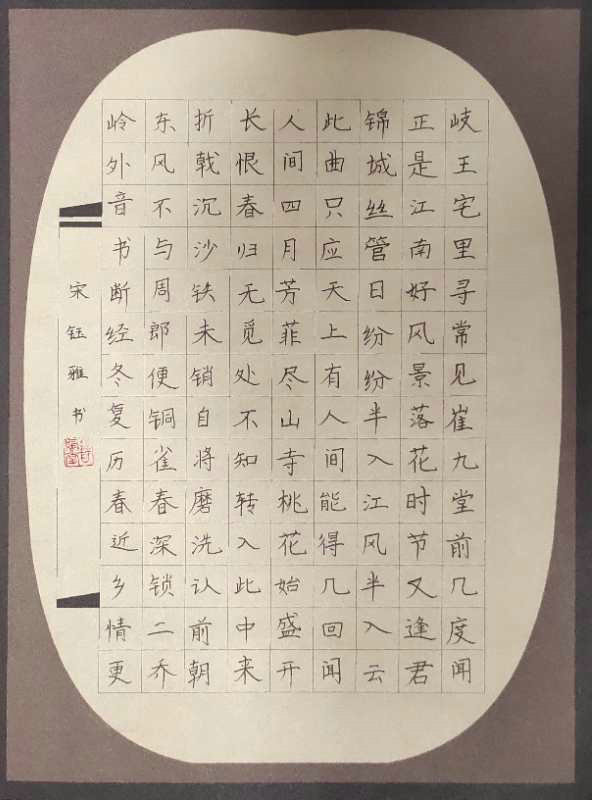 岐王宅里寻常见崔九堂前几度闻
正是江南好风景落花时节又逢君
锦城丝管日纷纷半入江风半入云
此曲只应天上有人间能得几回闻
人间四月芳菲尽山寺桃花始盛开
长恨春归无觅处不知转入此中来
折戟沉沙铁未销自将磨洗认前朝
东风不与周郎便铜雀春深锁二乔
岭外音书断经冬复历春近乡情更
宋钰雅书